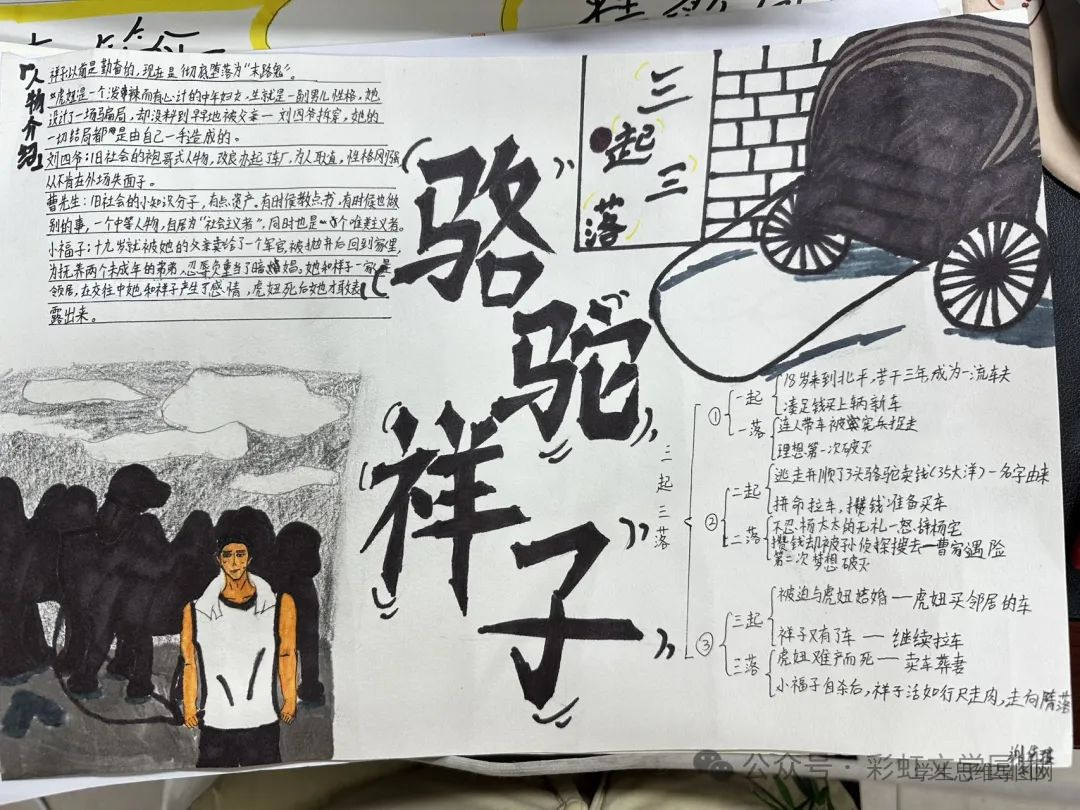 『人物介绍』
祥子以前是勤奋的，现在是彻底堕落为“末路鬼”。
虎妞是一个泼辣而有心计的中年妇女，生就是一副男儿性格，她
设计了一场骗局，却没料到早早地被父亲——刘四爷拆穿，她的
一切结局都是由自己一手造成的。
刘四爷：旧社会的袍哥式人物，改良办起了车厂，为人耿直，性格刚强
从不肯在外场失面子。
曹先生：旧社会的小知识分子，有点资产，有时候教点书，有时候也做
别的事，一个中等人物，自居为“社会主义者”，同时也是一个唯美主义者。
小福子：十九岁就被她的父亲卖给了一个军官被抛弃后回到家里，
为抚养两个未成年的弟弟，忍辱负重当了暗娼。她和祥子一家是
邻居，在交往中她和祥子产生了感情，虎妞死后她才敢表
露出来。
骆驼
祥子
三
起
三
落
三起三落
①
一起
18岁来到北平，苦干三年，成为一流车夫
凑足钱买上辆新车
一落
连人带车被宪兵捉走
理想第一次破灭
②
二起
逃走并顺了3头骆驼卖钱(35大洋)—名字由来
拼命拉车，攒钱准备买车
二落
不忍杨太太的无礼—怒辞杨宅
攒钱却被孙侦探搜去—曹家遇险
第二次梦想破灭
③
三起
被迫与虎妞结婚—虎妞买邻居的车
祥子又有了车—继续拉车
三落
虎妞难产而死—卖车葬妻
小福子自杀后，祥子活如行尺走肉，走向隋落
公众号·彩虹文学
学生思维导图网